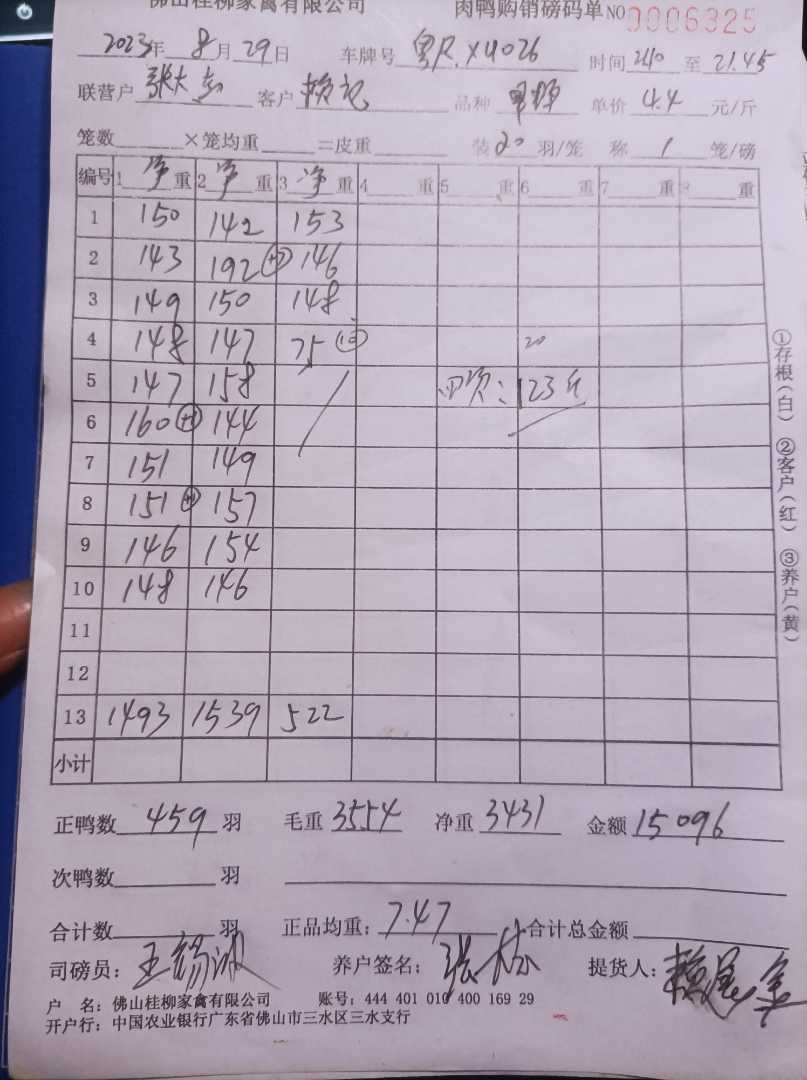 佛山桂柳家禽有限公司 肉鸭购销磅码单 NO 0006325
2023年 8月 29日 车牌号 粤R.X4026 时间 至 21.45
联营户 张大 客户 赖记 品种 单价 4.4 元/斤
笼数 ×笼均重 =皮重 装 20 羽/笼 称 1 笼/磅
编号 1 净重 2 净重 3 净重 4 重 5 重 6 重 7 重 8 重
1 150 142 153
2 143 192 146
3 149 150 148
4 148 147 75 20
5 147 158 123斤
6 160 144
7 151 149
8 151 157
9 146 154
10 148 146
11
12
13 1493 1539 522
小计
正鸭数 459 羽 毛重 3554 净重 3431 金额 15096
次鸭数 羽
合计数 羽 正品均重: 7.47 合计总金额
司磅员: 王锡波 养户签名: 张 提货人: 赖
户 名: 佛山桂柳家禽有限公司 账号: 444 401 010 400 169 29
开户行: 中国农业银行广东省佛山市三水区三水支行
①存根(白) ②客户(红) ③养户(黄)